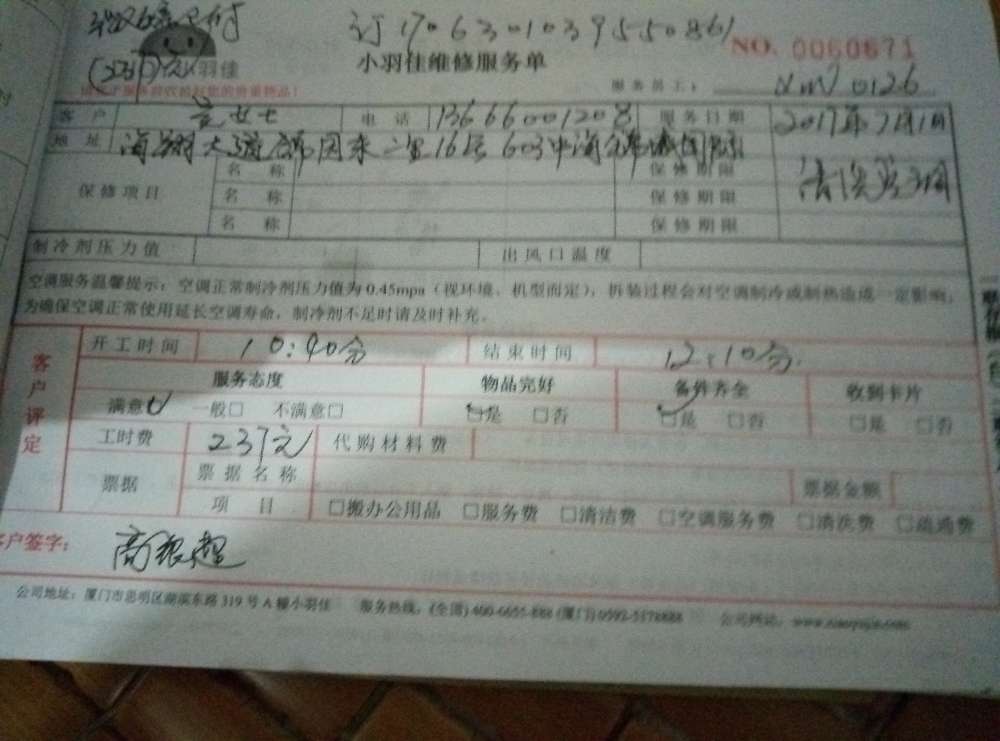 订1706301039550861
NO. 0060671
小羽佳
小羽佳维修服务单
服务员工: XM 0126
客户 女士 电话 13666001208 服务日期 2017年7月1日
地址 海翔大道 二里16号603中海
保修项目 名称 保修期限 清洗空调
名称 保修期限
名称 保修期限
制冷剂压力值 出风口温度
空调服务温馨提示:空调正常制冷剂压力值为0.45mpa(视环境、机型而定),拆装过程会对空调制冷或制热造成一定影响,
为确保空调正常使用延长空调寿命,制冷剂不足时请及时补充。
客户评定
开工时间 10:40分 结束时间 12:10分
服务态度 物品完好 备件齐全 收到卡片
满意 一般□ 不满意□ □是 □否 □是 □否 □是 □否
工时费 237元 代购材料费
票据 票据名称 票据金额
项目 □搬办公用品 □服务费 □清洁费 □空调服务费 □清洗费 □疏通费
客户签字:
公司地址:厦门市思明区湖滨东路319号A幢小羽佳 服务热线:(全国)400-6655-888 (厦门)0592-5178888 公司网站:www.xiaoyujia.com